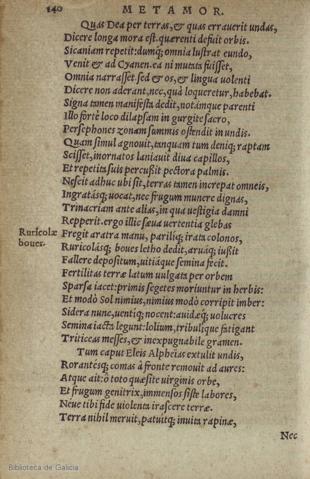 140 METAMOR.
Quas Dea per terras, & quas errauerit undas,
Dicere longa mora est. quærenti defuit orbis.
Sicaniam repetit: dumq; omnia lustrat eundo,
Venit & ad Cyanen. ea ni mutata fuisset,
Omnia narrasset. sed & os, & lingua uolenti
Dicere non aderant, nec, quà loqueretur, habebat.
Signa tamen manifesta dedit, notámque parenti
Illo fortè loco dilapsam in gurgite sacro,
Persephones zonam summis ostendit in undis.
Quam simul agnouit, tanquam tum deniq; raptam
Scisset, inornatos laniauit diua capillos,
Et repetita suis percußit pectora palmis.
Nescit adhuc ubi sit, terras tamen increpat omneis,
Ingratásq; uocat, nec frugum munere dignas,
Trinacriam ante alias, in qua uestigia damni
Repperit. ergo illic sæua uertentia glebas
Ruricolæ boues.
Fregit aratra manu, pariliq; irata colonos,
Ruricolásq; boues letho dedit, aruáq; iußit
Fallere depositum, uitiáque semina fecit.
Fertilitas terræ latum uulgata per orbem
Sparsa iacet: primis segetes moriuntur in herbis:
Et modò Sol nimius, nimius modò corripit imber:
Sidera nunc, uentiq; nocent: auidæq; uolucres
Semina iacta legunt: lolium, tribuliq̃ue fatigant
Triticeas messes, & inexpugnabile gramen.
Tum caput Eleis Alpheias extulit undis,
Rorantésq; comas à fronte remouit ad aures:
Atque ait: ô toto quæsite uirginis orbe,
Et frugum genitrix, immensos siste labores,
Néue tibi fidæ uiolenta irascere terræ.
Terra nihil meruit, patuitq; inuita rapinæ,
Nec
Biblioteca de Galicia